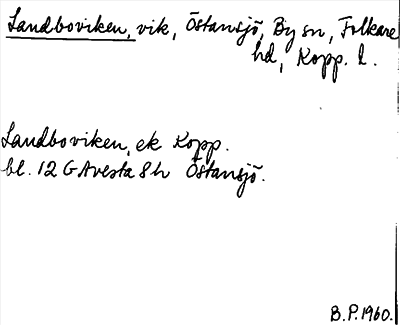 Landboviken, vik, Östansjö, By sn, Folkare
hd, Kopp. l.
Landboviken, ek Kopp.
bl. 12 G Avesta 8 h Östansjö.
B.P. 1960.